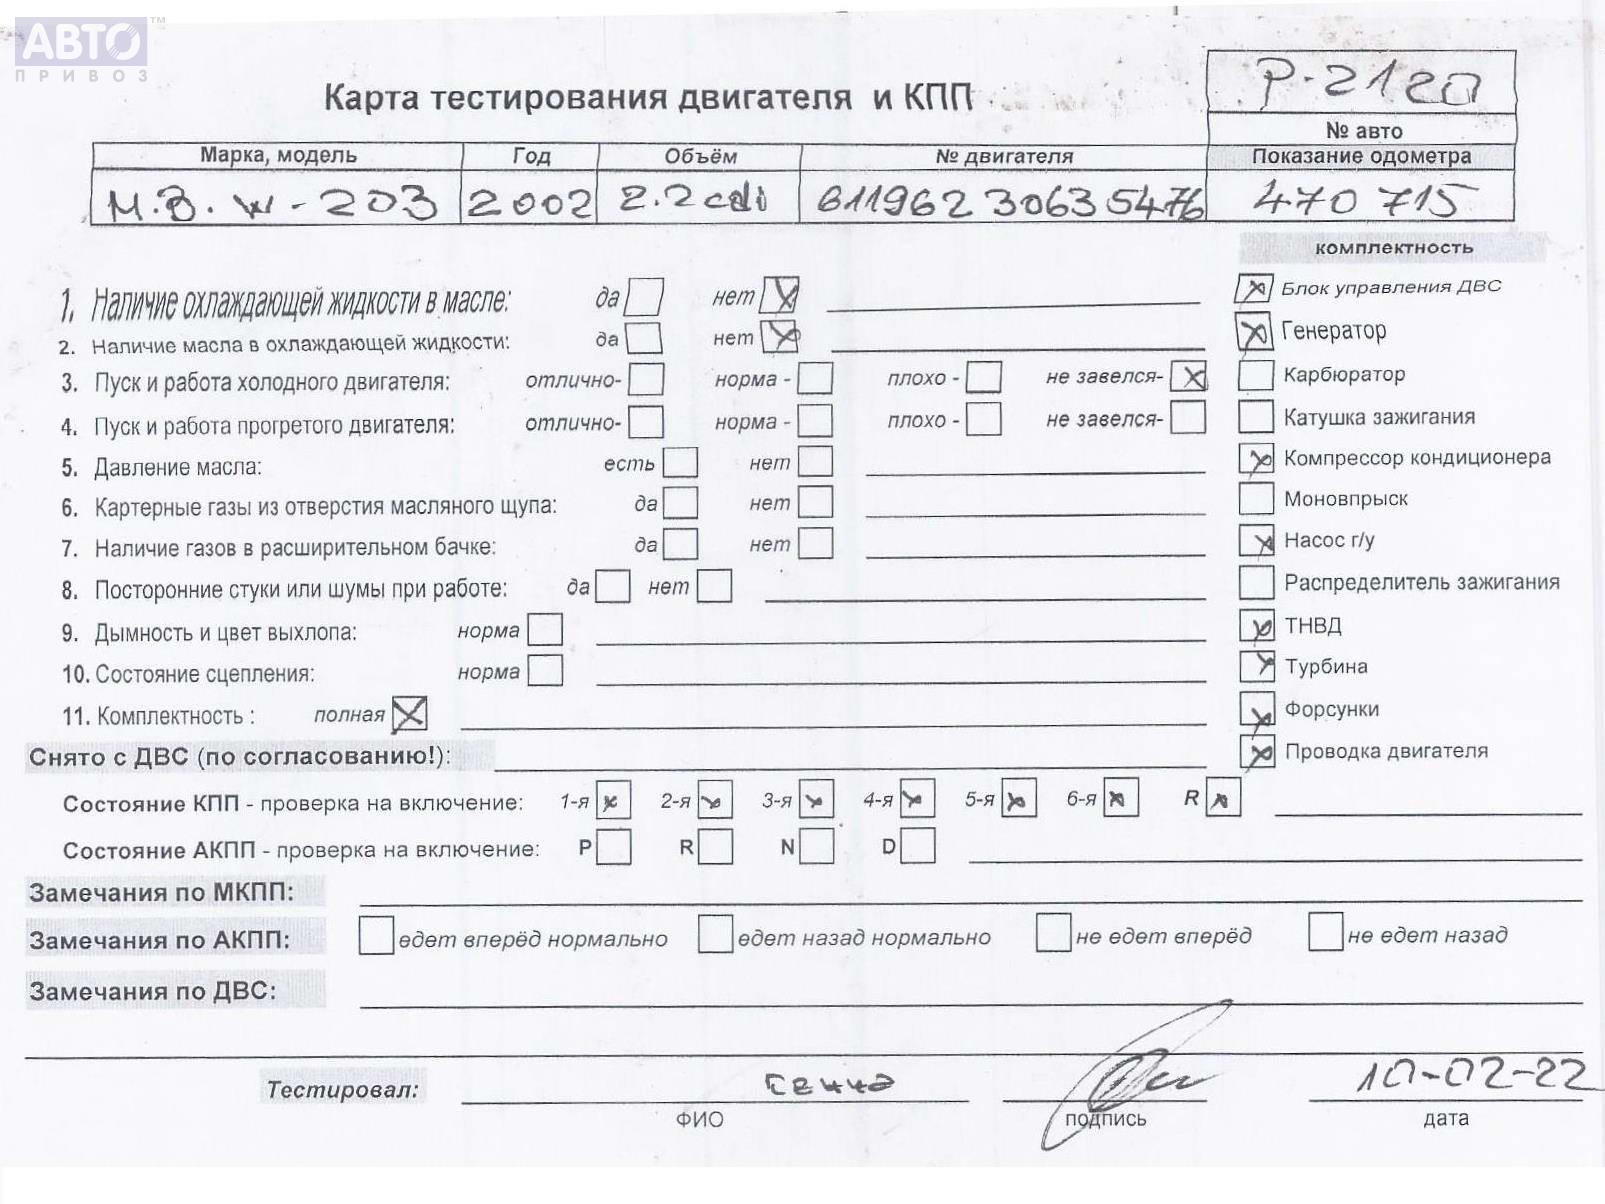 АВТО™
ПРИВОЗ
Карта тестирования двигателя и КПП
P-2120
№ авто
Марка, модель Год Объём № двигателя Показание одометра
M.B. W-203 2002 2.2 cdi 61196230635476 470 715
комплектность
1. Наличие охлаждающей жидкости в масле: да нет
Блок управления ДВС
2. Наличие масла в охлаждающей жидкости: да нет
Генератор
3. Пуск и работа холодного двигателя: отлично- норма - плохо - не завелся-
Карбюратор
4. Пуск и работа прогретого двигателя: отлично- норма - плохо - не завелся-
Катушка зажигания
5. Давление масла: есть нет
Компрессор кондиционера
6. Картерные газы из отверстия масляного щупа: да нет
Моновпрыск
7. Наличие газов в расширительном бачке: да нет
Насос г/у
8. Посторонние стуки или шумы при работе: да нет
Распределитель зажигания
9. Дымность и цвет выхлопа: норма
ТНВД
10. Состояние сцепления: норма
Турбина
11. Комплектность : полная
Форсунки
Снято с ДВС (по согласованию!):
Проводка двигателя
Состояние КПП - проверка на включение: 1-я 2-я 3-я 4-я 5-я 6-я R
Состояние АКПП - проверка на включение: P R N D
Замечания по МКПП:
Замечания по АКПП: едет вперёд нормально едет назад нормально не едет вперёд не едет назад
Замечания по ДВС:
Тестировал: 10-02-22
ФИО подпись дата